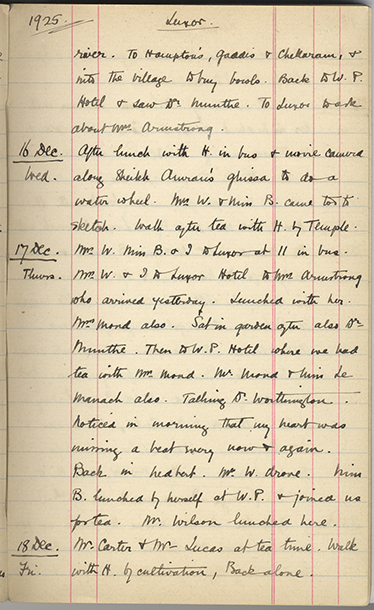 1925. Luxor.
river. To Hampton's, Gaddis & Chellaram, &
into the village to buy bowls. Back to W. P.
Hotel & saw Dr. Munthe. To Luxor to ask
about Mrs Armstrong.
16 Dec. After lunch with H. in bus & movie camera
Wed. along Sheikh Amran's ghissa to do a
water wheel. Mrs. W. & Miss B. came too to
sketch. Walk after tea with H. by Temple.
17 Dec. Mrs. W. Miss B. & I to Luxor at 11 in bus.
Thurs. Mrs. W. & I to Luxor Hotel to Mrs Armstrong
who arrived yesterday. Lunched with her.
Mrs Mond also. Sat in garden after also Dr
Munthe. Then to W. P. Hotel where we had
tea with Mrs Mond. Mr. Mond & Miss Le
Manach also. Talking Dr. Worthington.
Noticed in morning that my heart was
missing a beat every now & again.
Back in hedbert. Mr. W. drove. Miss
B. lunched by herself at W. P. & joined us
for tea. Mr. Wilson lunched here.
18 Dec. Mr. Carter & Mr Lucas at tea time. Walk
Fri. with H. by cultivation, Back alone.